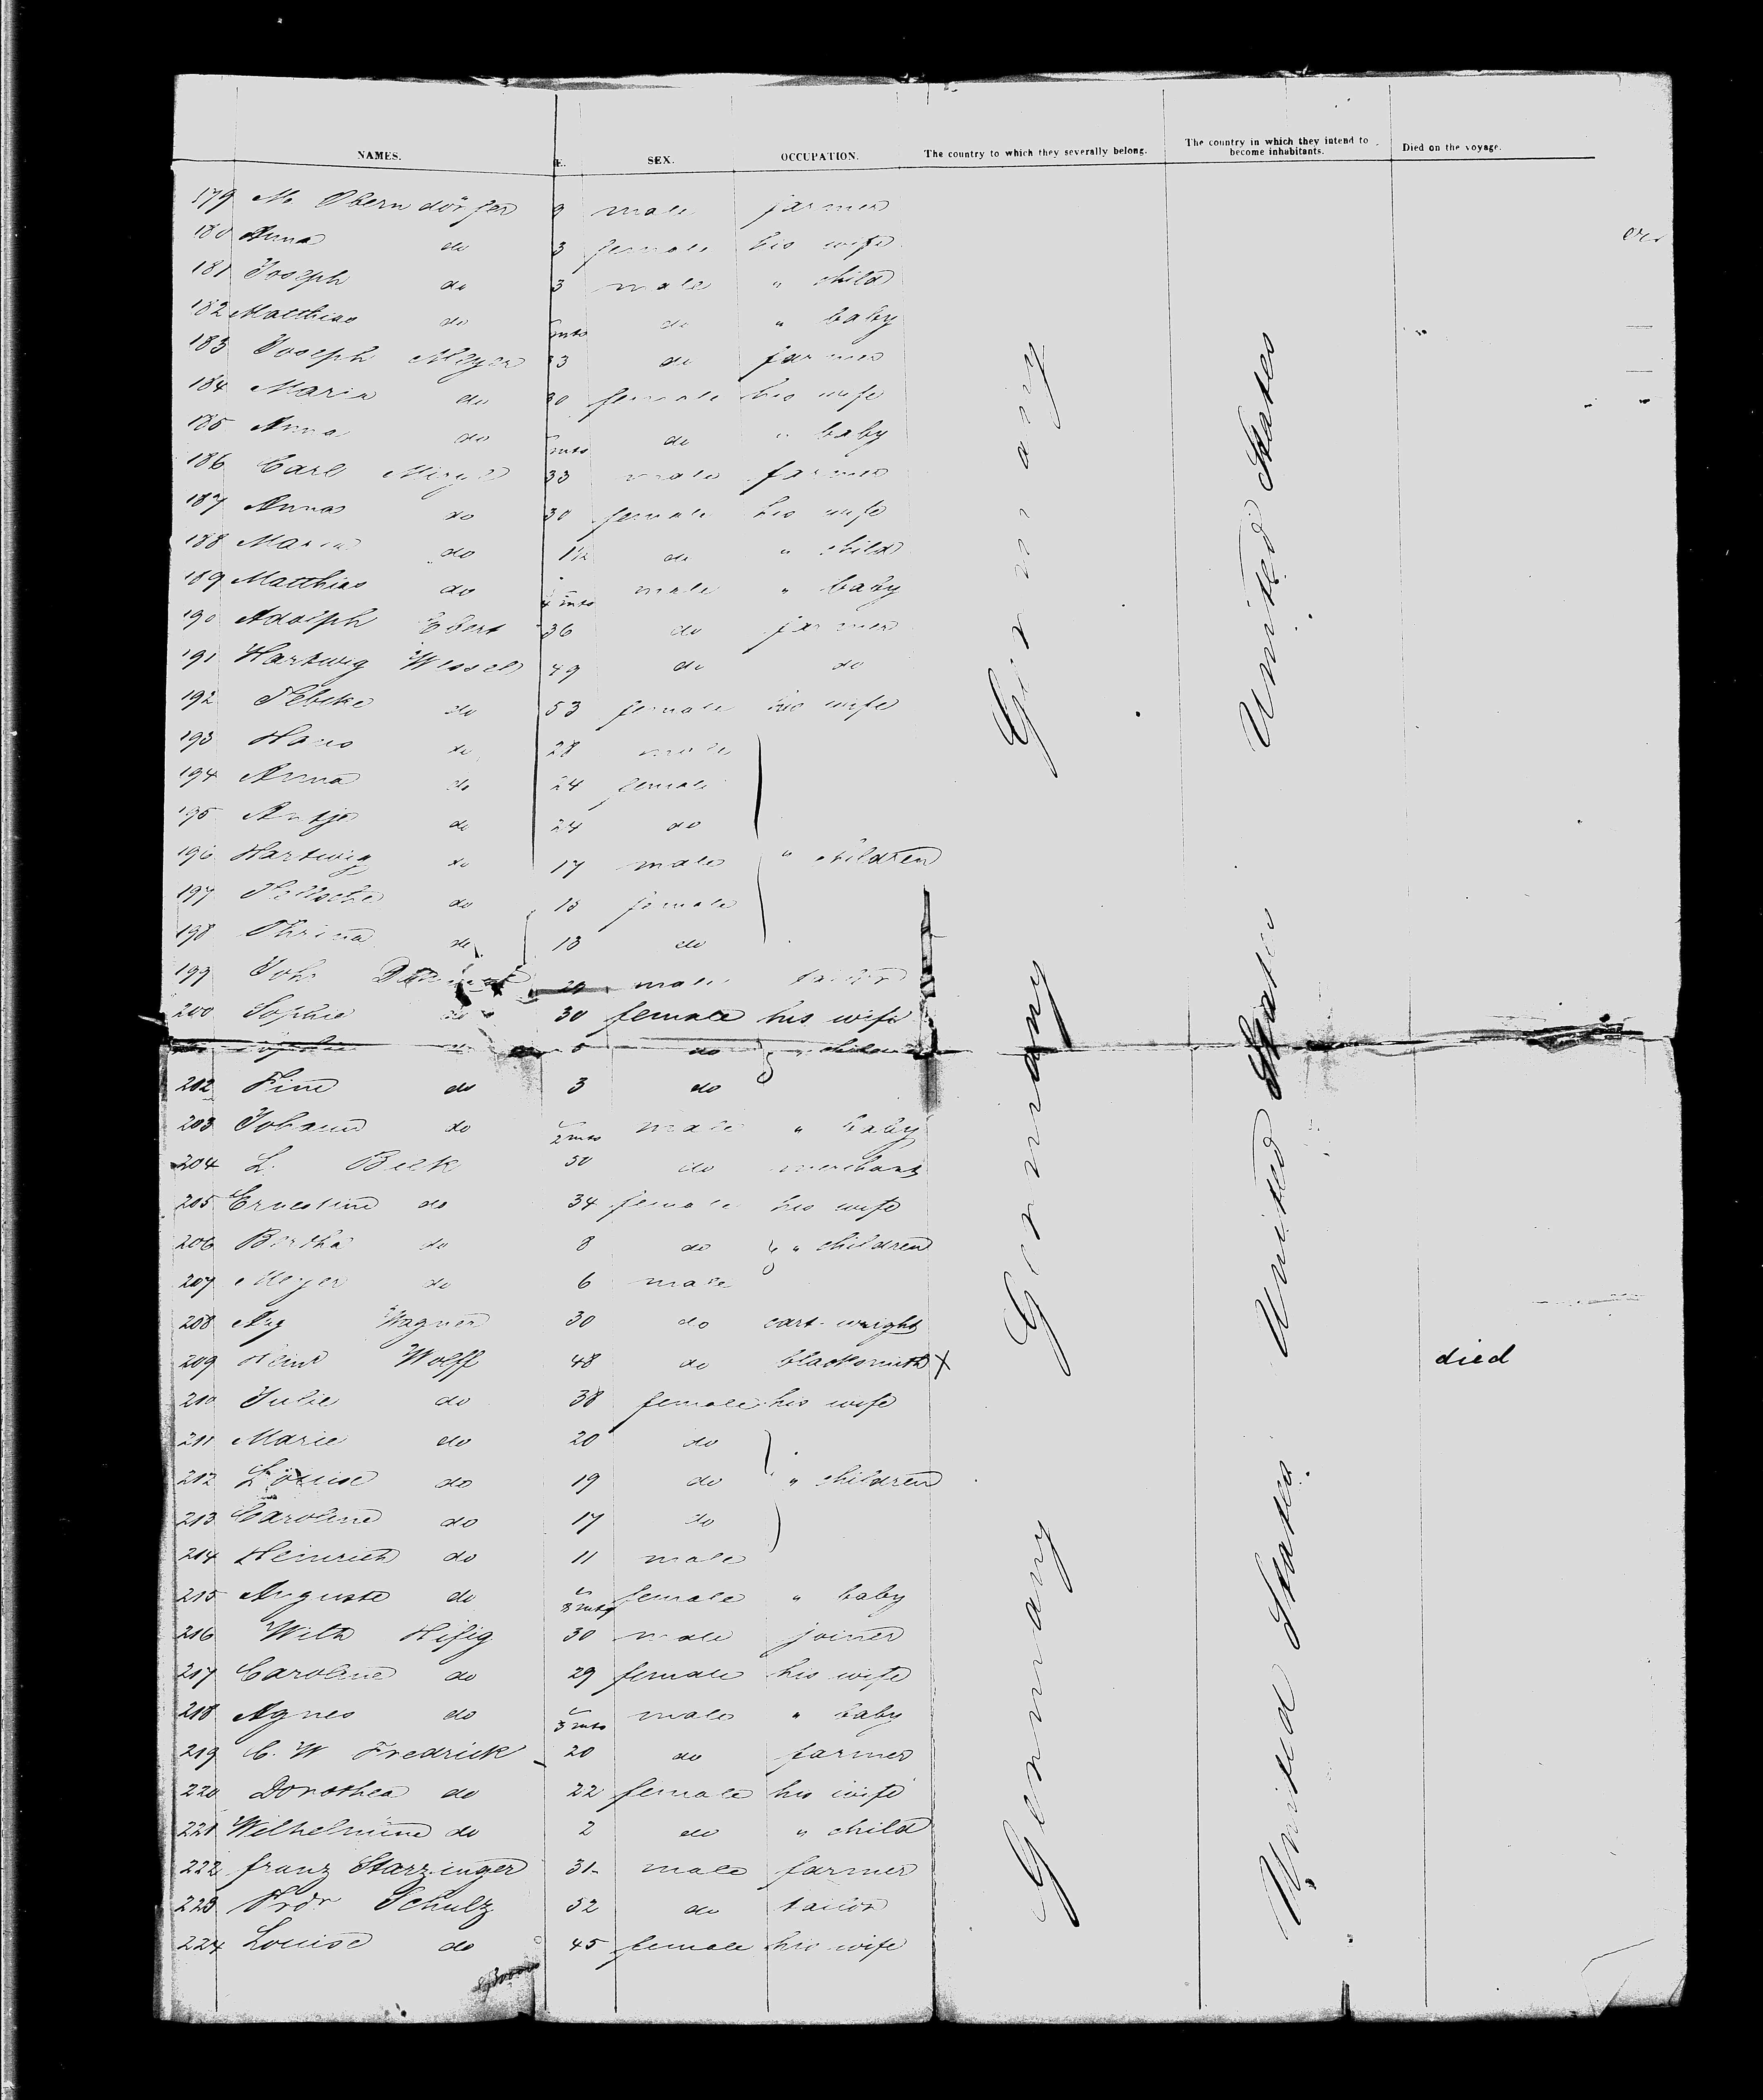 NAMES. E. SEX. OCCUPATION. The country to which they severally belong. The country in which they intend to become inhabitants. Died on the voyage.
179 M. Oberndörfer male farmer
180 Anna do 3 female his wife
181 Joseph do 3 male " child
182 Matthias do mts do " baby
183 Joseph Meyer 33 do farmer
184 Maria do 30 female his wife
185 Anna do mts do " baby
186 Carl 33 male farmer
187 Anna do 30 female his wife
188 Maria do 1 1/2 do " child
189 Matthias do 4 mts male " baby
190 Adolph Ebert 36 do farmer
191 Hartwig Wessel 49 do do
192 do 53 female his wife
193 Hans do 28 male
194 Anna do 24 female
195 Antje do 24 do
196 Hartwig do 17 male " children
197 do 15 female
198 do 13 do
199 Joh. male
200 Sophie do 30 female his wife
Sophie do 5 do " children
202 Fine do 3 do
203 Johann do 2 mts male " baby
204 L. Beck 30 do merchant
205 Ernestine do 34 female his wife
206 Bertha do 8 do " children
207 Meyer do 6 male
208 Aug Wagner 30 do cart-wright
209 Heinr Wolff 48 do blacksmith X died
210 Julie do 38 female his wife
211 Marie do 20 do
212 Louise do 19 do " children
213 Caroline do 17 do
214 Heinrich do 11 male
215 Auguste do 8 mts female " baby
216 Wilh Hifig 30 male joiner
217 Caroline do 29 female his wife
218 Agnes do 3 mts male " baby
219 C. W Fredrick 20 do farmer
220 Dorothea do 22 female his wife
221 Wilhelmine do 2 do " child
222 franz Starzinger 31 male farmer
223 Frdr Schultz 52 do tailor
224 Louise do 45 female his wife
Germany
United States
Germany
United States
Germany
United States